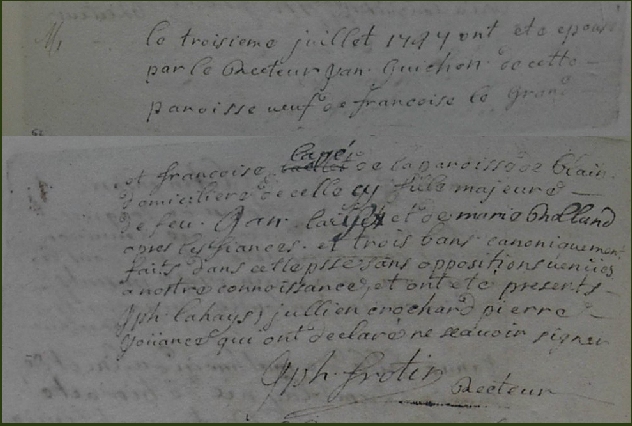 M/
le troisieme juillet 1747 ont ete epousé
par le Recteur jan Guichon de cette
paroisse veuf de francoise le Grand
et francoise larré de la paroisse de blain
domiciliere de celle cy fille majeure
de feu jan et de marie Challand
apres les fiances et trois bans canoniquement
faits dans cette psse sans oppositions venües
a nostre connoissance, et ont ete presents
jph lahays, jullien crochard pierre
Joüance qui ont declaré ne scavoir signer
Jph. frotin Recteur